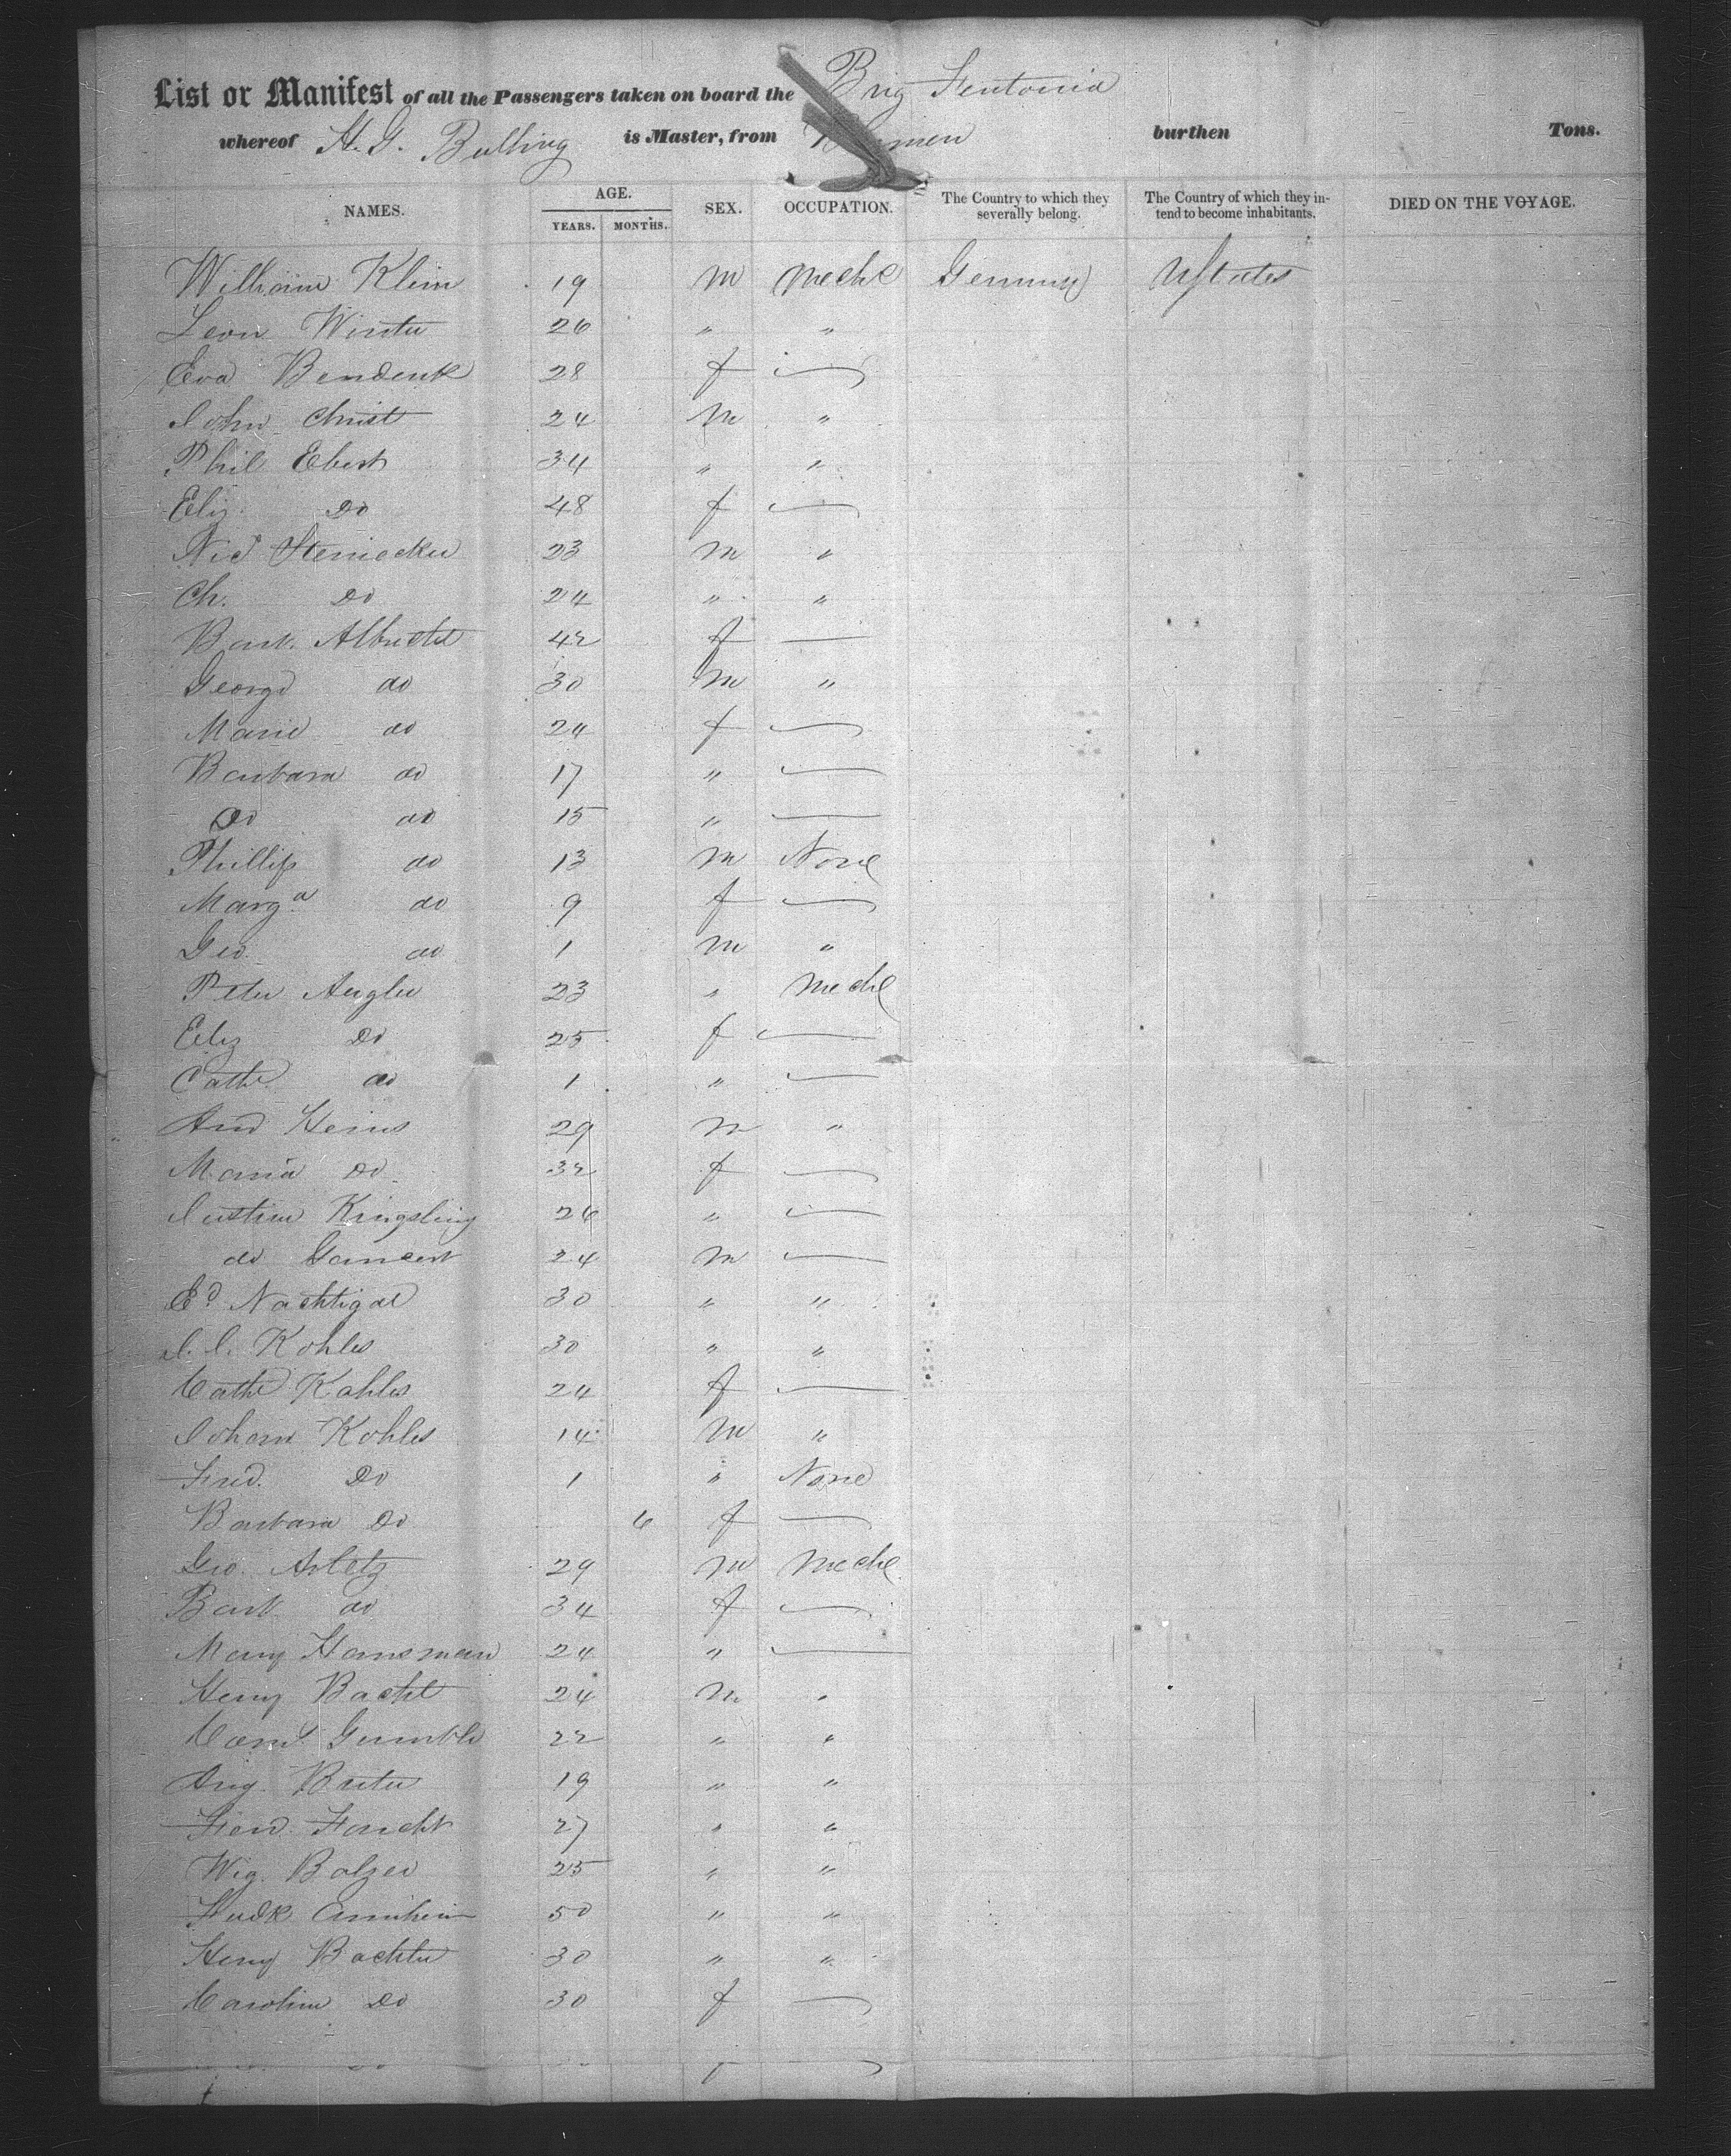 List or Manifest of all the Passengers taken on board the Brig Teutonia
whereof H. G. Bulling is Master, from Bremen burthen Tons.
NAMES. AGE. YEARS. MONTHS. SEX. OCCUPATION. The Country to which they severally belong. The Country of which they intend to become inhabitants. DIED ON THE VOYAGE.
William Klein 19 m Mechc Germany UStates
Leon Winter 26 " "
Eva 28 f —
John Christ 24 m "
Phil Ebert 34 " "
Eliz Do 48 f —
Nic 23 m "
Ch. Do 24 " "
Barb. Albrecht 42 f —
George do 30 m "
Marie do 24 f —
Barbara do 17 " —
Do do 15 " —
Phillip do 13 m None
Marga do 9 f —
Geo. do 1 m "
Peter Angler 23 " Mechc
Eliz Do 25 f —
Cathe do 1 " —
And Heins 29 m "
Maria Do 32 f —
Justine Kingsling 26 " —
do 24 m —
Ed Nachtigal 30 " "
J. J. Kohles 30 " "
Cathe Kahles 24 f —
Johann Kohles 14 m "
Fred. Do 1 " None
Barbara Do 6 f —
Geo. Arletz 29 m Mechc
Barb do 34 f —
Mary Hansman 24 " —
Henry Bacht 24 m "
22 " "
Aug. 19 " "
Ferd. 27 " "
Wig. Balzer 25 " "
50 " "
Henry Bachter 30 " "
Caroline Do 30 f —